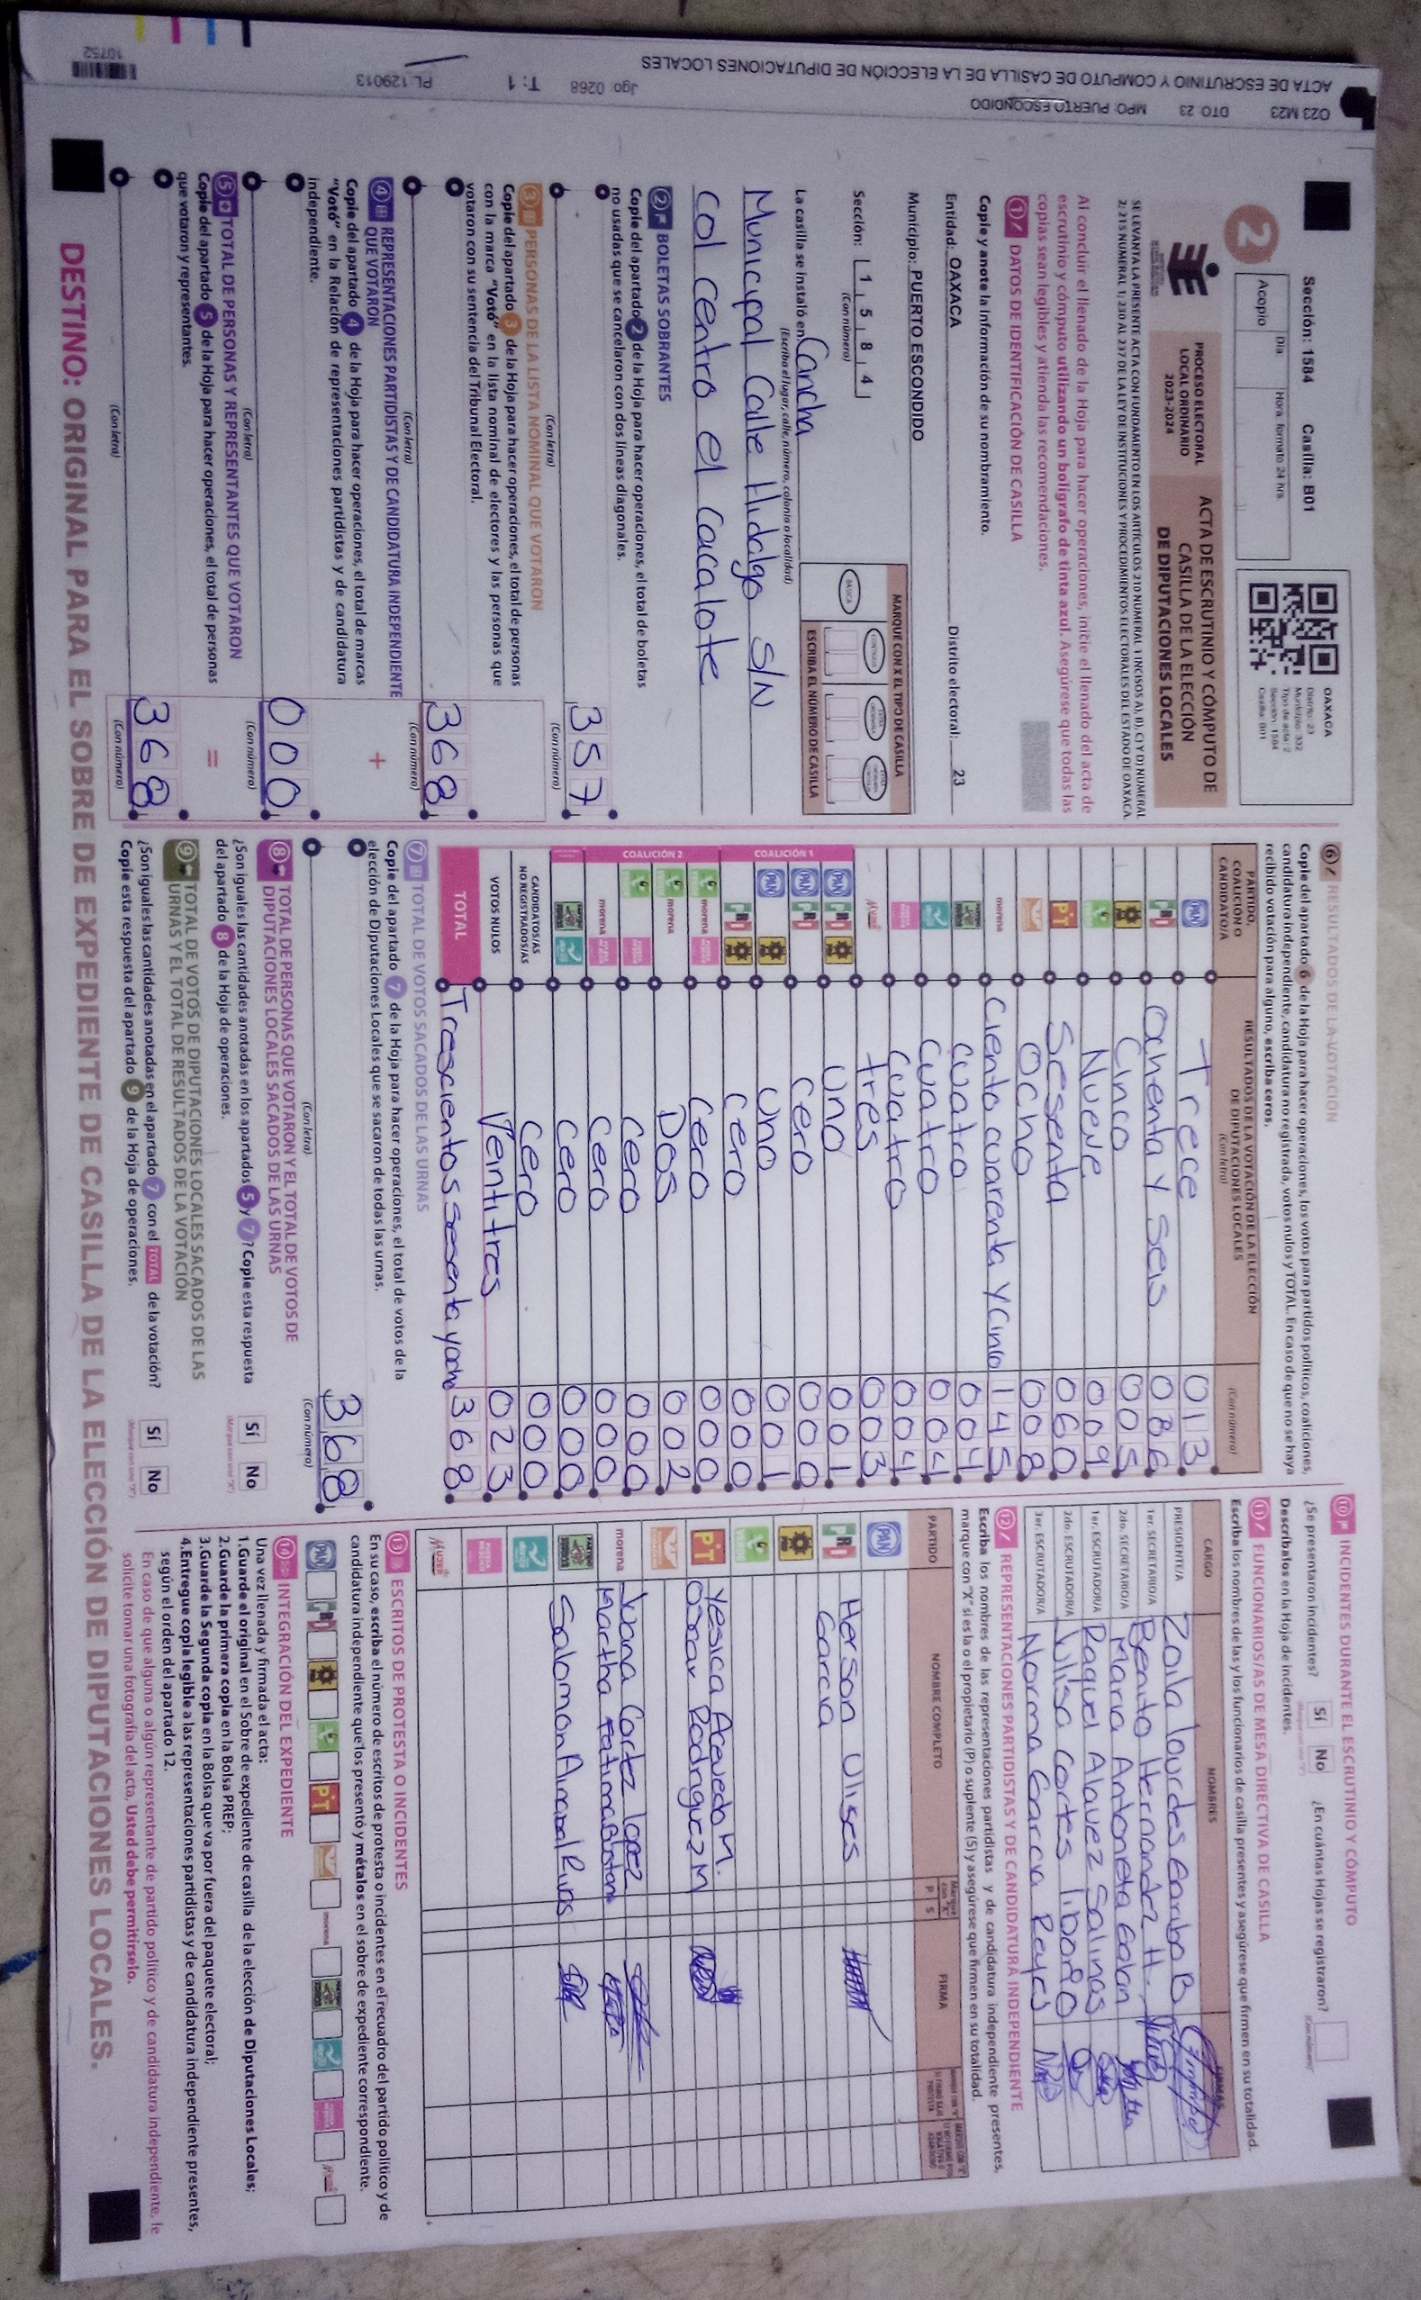 O23 M23 DTO: 23 MPO: PUERTO ESCONDIDO Jgo: 0268 T: 1 PL: 129013 10752
ACTA DE ESCRUTINIO Y COMPUTO DE CASILLA DE LA ELECCIÓN DE DIPUTACIONES LOCALES
Sección: 1584 Casilla: B01
Día: Hora: formato 24 hrs.
Acopio
2
OAXACA
Distrito: 23
Municipio: 332
Tipo de acta: 2
Sección: 1584
Casilla: B01
PROCESO ELECTORAL
LOCAL ORDINARIO
2023-2024
ACTA DE ESCRUTINIO Y CÓMPUTO DE
CASILLA DE LA ELECCIÓN
DE DIPUTACIONES LOCALES
SE LEVANTA LA PRESENTE ACTA CON FUNDAMENTO EN LOS ARTÍCULOS 210 NUMERAL 1 INCISOS A), B), C) Y D) NUMERAL
2; 215 NUMERAL 1; 230 AL 237 DE LA LEY DE INSTITUCIONES Y PROCEDIMIENTOS ELECTORALES DEL ESTADO DE OAXACA.
Al concluir el llenado de la Hoja para hacer operaciones, inicie el llenado del acta de
escrutinio y cómputo utilizando un bolígrafo de tinta azul. Asegúrese que todas las
copias sean legibles y atienda las recomendaciones.
1 DATOS DE IDENTIFICACIÓN DE CASILLA
Copie y anote la información de su nombramiento.
Entidad: OAXACA Distrito electoral: 23
Municipio: PUERTO ESCONDIDO
Sección: 1 5 8 4
(Con número)
MARQUE CON X EL TIPO DE CASILLA
BÁSICA
ESCRIBA EL NÚMERO DE CASILLA
La casilla se instaló en: Cancha
(Escriba el lugar, calle, número, colonia o localidad)
Municipal Calle Hidalgo S/N
Col Centro el Cacalote
2 BOLETAS SOBRANTES
Copie del apartado 2 de la Hoja para hacer operaciones, el total de boletas
no usadas que se cancelaron con dos líneas diagonales.
357
(Con letra) (Con número)
3 PERSONAS DE LA LISTA NOMINAL QUE VOTARON
Copie del apartado 3 de la Hoja para hacer operaciones, el total de personas
con la marca "Votó" en la lista nominal de electores y las personas que
votaron con su sentencia del Tribunal Electoral.
368
(Con letra) (Con número)
4 REPRESENTACIONES PARTIDISTAS Y DE CANDIDATURA INDEPENDIENTE
QUE VOTARON
+
Copie del apartado 4 de la Hoja para hacer operaciones, el total de marcas
"Votó" en la Relación de representaciones partidistas y de candidatura
independiente.
000
(Con letra) (Con número)
5 TOTAL DE PERSONAS Y REPRESENTANTES QUE VOTARON
=
Copie del apartado 5 de la Hoja para hacer operaciones, el total de personas
que votaron y representantes.
368
(Con letra) (Con número)
6 RESULTADOS DE LA VOTACIÓN
Copie del apartado 6 de la Hoja para hacer operaciones, los votos para partidos políticos, coaliciones,
candidatura independiente, candidatura no registrada, votos nulos y TOTAL. En caso de que no se haya
recibido votación para alguno, escriba ceros.
PARTIDO, COALICIÓN O CANDIDATO/A
RESULTADOS DE LA VOTACIÓN DE LA ELECCIÓN DE DIPUTACIONES LOCALES
(Con letra) (Con número)
PAN Trece 013
PRI Ochenta y Seis 086
PRD Cinco 005
Nueve 009
PT Sesenta 060
Ocho 008
morena Ciento cuarenta y cinco 145
Cuatro 004
Cuatro 004
Cuatro 004
MUJER Tres 003
COALICIÓN 1
PAN PRI PRD Uno 001
PAN PRI Cero 000
PAN PRD Uno 001
PRI PRD Cero 000
COALICIÓN 2
morena Cero 000
morena Dos 002
Cero 000
morena Cero 000
Cero 000
CANDIDATOS/AS NO REGISTRADOS/AS Cero 000
VOTOS NULOS Veintitres 023
TOTAL Trescientos sesenta y ocho 368
7 TOTAL DE VOTOS SACADOS DE LAS URNAS
Copie del apartado 7 de la Hoja para hacer operaciones, el total de votos de la
elección de Diputaciones Locales que se sacaron de todas las urnas.
368
(Con letra) (Con número)
8 TOTAL DE PERSONAS QUE VOTARON Y EL TOTAL DE VOTOS DE
DIPUTACIONES LOCALES SACADOS DE LAS URNAS
¿Son iguales las cantidades anotadas en los apartados 5 y 7? Copie esta respuesta
del apartado 8 de la Hoja de operaciones.
Sí No
9 TOTAL DE VOTOS DE DIPUTACIONES LOCALES SACADOS DE LAS
URNAS Y EL TOTAL DE RESULTADOS DE LA VOTACIÓN
¿Son iguales las cantidades anotadas en el apartado 7 con el TOTAL de la votación?
Copie esta respuesta del apartado 9 de la Hoja de operaciones.
Sí No
10 INCIDENTES DURANTE EL ESCRUTINIO Y CÓMPUTO
¿Se presentaron incidentes? Sí No ¿En cuántas Hojas se registraron?
(Con número)
Descríbalos en la Hoja de incidentes.
11 FUNCIONARIOS/AS DE MESA DIRECTIVA DE CASILLA
Escriba los nombres de las y los funcionarios de casilla presentes y asegúrese que firmen en su totalidad.
CARGO NOMBRES FIRMAS
PRESIDENTE/A Zoila Lourdes
1er. SECRETARIO/A Benito Hernandez H.
2do. SECRETARIO/A Maria Antonieta Galan
1er. ESCRUTADOR/A Raquel Alavez Salinas
2do. ESCRUTADOR/A Julisa Cortes Liborio
3er. ESCRUTADOR/A Norma Garcia Reyes
12 REPRESENTACIONES PARTIDISTAS Y DE CANDIDATURA INDEPENDIENTE
Escriba los nombres de las representaciones partidistas y de candidatura independiente presentes,
marque con "X" si es la o el propietario (P) o suplente (S) y asegúrese que firmen en su totalidad.
PARTIDO NOMBRE COMPLETO P S FIRMA
PAN
PRI Herson Ulises
Garcia
PRD
PT Yesica Acevedo M.
Oscar Rodriguez M
morena Juana Cortez Lopez
Martha Fatima
Salomon
MUJER
13 ESCRITOS DE PROTESTA O INCIDENTES
En su caso, escriba el número de escritos de protesta o incidentes en el recuadro del partido político y de
candidatura independiente que los presentó y métalos en el sobre de expediente correspondiente.
PAN PRI PRD PT morena MUJER
INTEGRACIÓN DEL EXPEDIENTE
Una vez llenada y firmada el acta:
1.Guarde el original en el Sobre de expediente de casilla de la elección de Diputaciones Locales;
2.Guarde la primera copia en la Bolsa PREP;
3.Guarde la Segunda copia en la Bolsa que va por fuera del paquete electoral;
4.Entregue copia legible a las representaciones partidistas y de candidatura independiente presentes,
según el orden del apartado 12.
En caso de que alguna o algún representante de partido político y de candidatura independiente, le
solicite tomar una fotografía del acta, Usted debe permitírselo.
DESTINO: ORIGINAL PARA EL SOBRE DE EXPEDIENTE DE CASILLA DE LA ELECCIÓN DE DIPUTACIONES LOCALES.